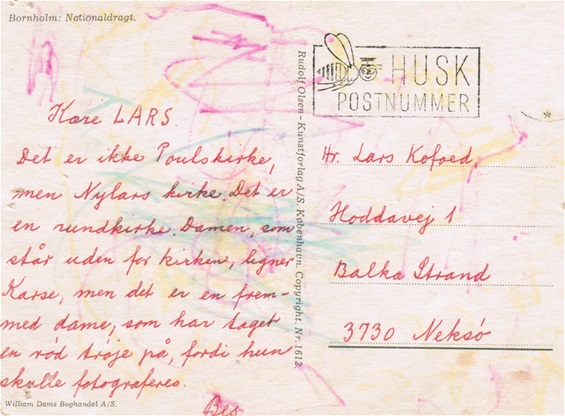 Bornholm: Nationaldragt.
Kære LARS.
Det er ikke Poulskirke,
men Nylars kirke. Det er
en rundkirke. Damen, som
står uden for kirken, ligner
Karse, men det er en frem-
med dame, som har taget
en rød trøje på, fordi hun
skulle fotograferes.
William Dams Boghandel A/S.
Rudolf Olsen - Kunstforlag A/S. København. Copyright. Nr. 1612.
HUSK
POSTNUMMER
Hr. Lars Kofoed,
Hoddavej 1
Balka Strand
3730 Neksø